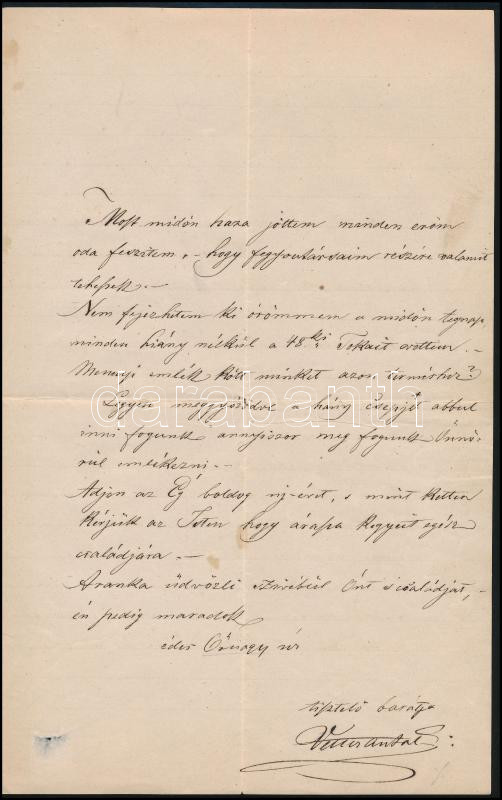 Most midőn haza jöttem minden erőm
oda feszítem, – hogy fegyvertársaim részére valamit
tehessek. –
Nem fejezhetem ki örömmem a midőn tegnap
minden hiány nélkül a 48.ki Tokait vettem. –
Mennyi emlék köt minket azon terméshez?
Legyen meggyőződve a hány cseppjét abbul
inni fogunk annyiszor meg fogunk Önnö-
rül emlékezni. –
Adjon az Ég boldog uj-évet, s mint ketten
kérjük az Isten hogy árassa kegyeit egész
családjára. –
Aranka üdvözli szivébül Önt s családját, –
én pedig maradok
édes Őrnagy úr
tisztelő barátja
Vetterantal
darabanth